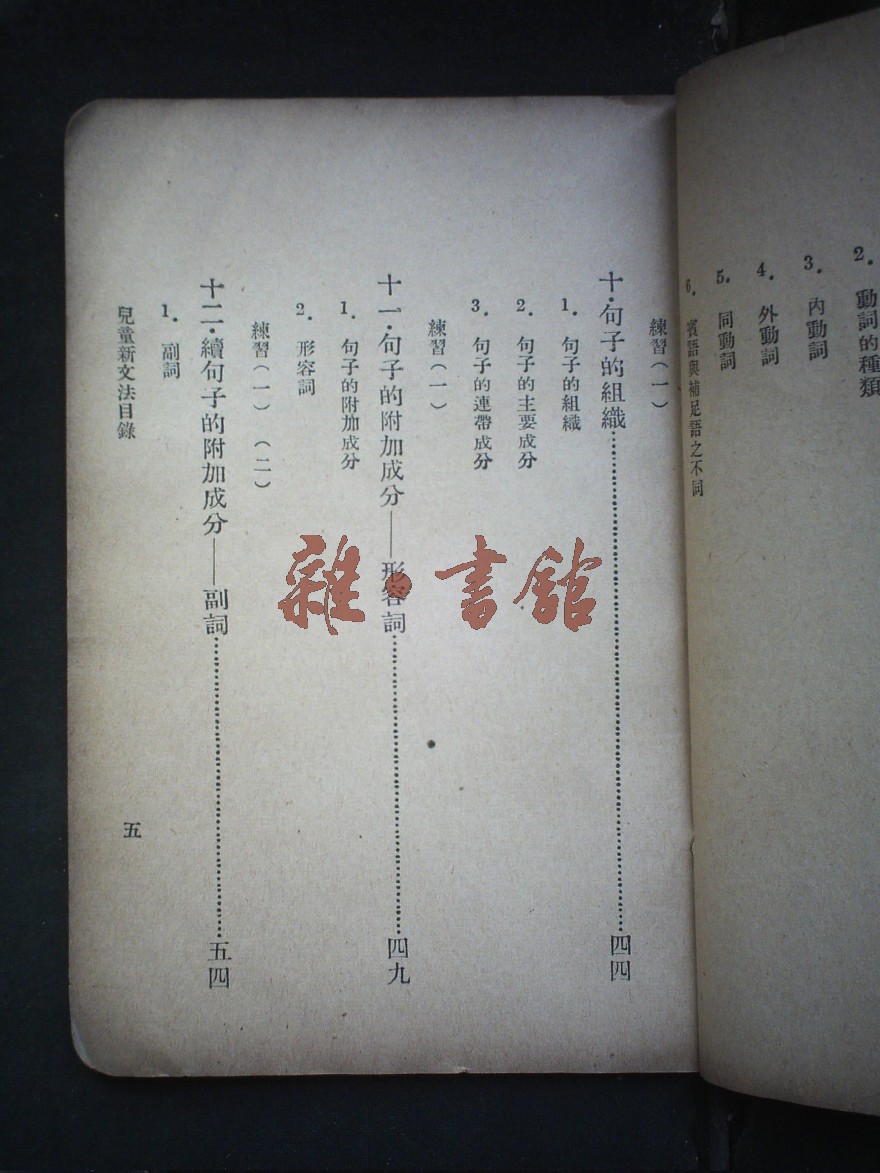 2. 動詞的種類
3. 內動詞
4. 外動詞
5. 同動詞
6. 賓語與補足語之不詞
練習(一)
十.句子的組織……四四
1. 句子的組織
2. 句子的主要成分
3. 句子的連帶成分
練習(一)
十一.句子的附加成分——形容詞……四九
1. 句子的附加成分
2. 形容詞
練習(一)(二)
十二.續句子的附加成分——副詞……五四
1. 副詞
兒童新文法目錄
五
雜·書館